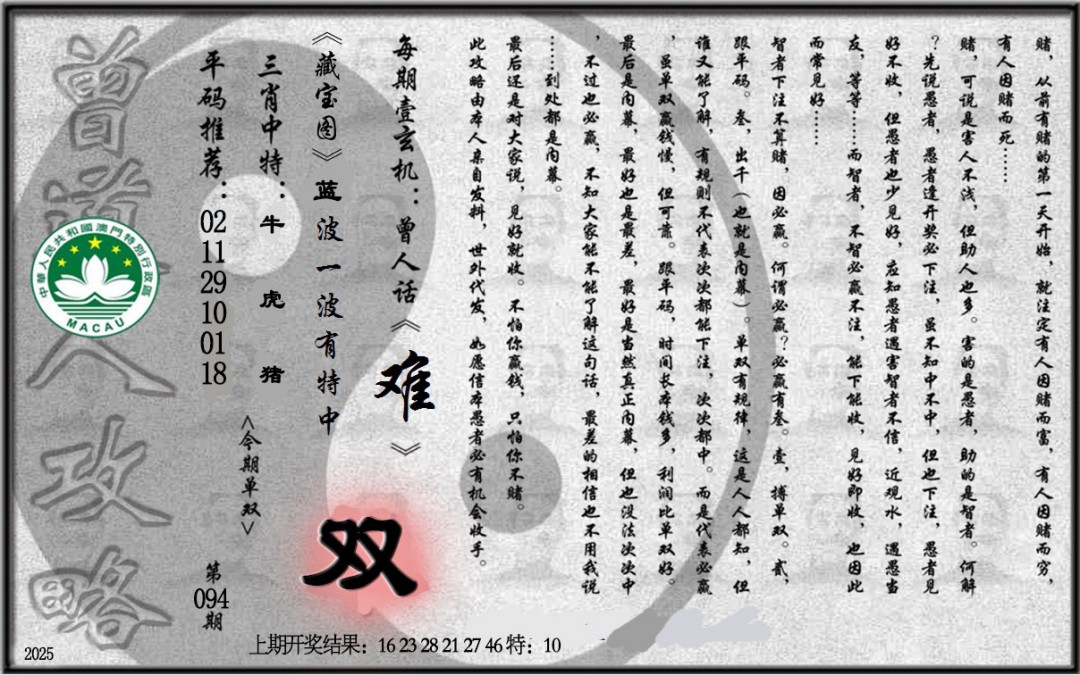 赌，从前有赌的第一天开始，就注定有人因赌而富，有人因赌而穷，
有人因赌而死……
赌，可说是害人不浅，但助人也多。害的是愚者，助的是智者。何解
？先说愚者，愚者逢开奖必下注，虽不知中不中，但也下注，愚者见
好不收，但愚者也少见好，应知愚者遇害智者不信，近观水，遇愚当
友，等等……而智者，不智必赢不注，能下能收，见好即收，也因此
而常见好……
智者下注不算赌，因必赢。何谓必赢？必赢有叁。壹，搏单双。贰，
跟平码。叁，出千（也就是内幕）。单双有规律，这是人人都知，但
谁又能了解，有规则不代表次次都能下注，次次都中。而是代表必赢
，虽单双赢钱慢，但可靠。跟平码，时间长本钱多，利润比单双好。
最后是内幕，最好也是最差，最好是当然真正内幕，但也没法次次中
，不过也必赢，不知大家能不能了解这句话，最差的相信也不用我说
……到处都是内幕。
最后还是对大家说，见好就收。不怕你赢钱，只怕你不赌。
此攻略由本人亲自发料，世外代发，如愿信本愚者必有机会收手。
每期壹玄机：曾人话《难》
《藏宝图》蓝波一波有特中
三肖中特：牛 虎 猪
平码推荐：02 11 29 10 01 18
<今期单双>
双
第094期
曾道人攻略
中華人民共和國澳門特別行政區
MACAU
上期开奖结果：16 23 28 21 27 46 特：10
2025